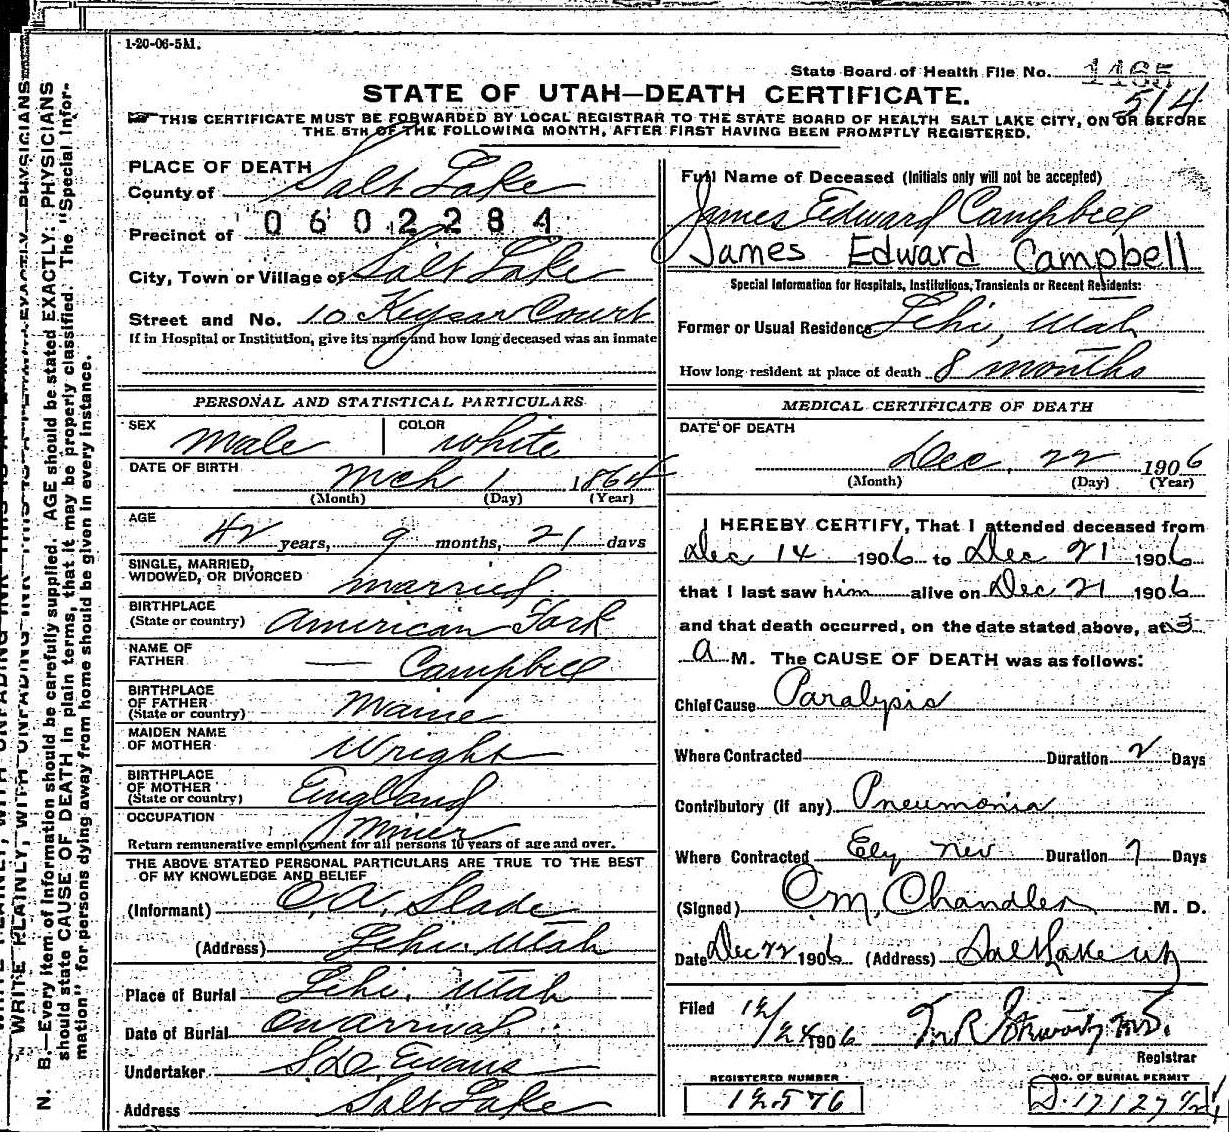 1-20-06-5M.
State Board of Health File No. 1465
514
STATE OF UTAH—DEATH CERTIFICATE.
THIS CERTIFICATE MUST BE FORWARDED BY LOCAL REGISTRAR TO THE STATE BOARD OF HEALTH SALT LAKE CITY, ON OR BEFORE
THE 5TH OF THE FOLLOWING MONTH, AFTER FIRST HAVING BEEN PROMPTLY REGISTERED.
PLACE OF DEATH
County of Salt Lake
Precinct of 0602284
City, Town or Village of Salt Lake
Street and No. 10 Keysar Court
If in Hospital or Institution, give its name and how long deceased was an inmate
PERSONAL AND STATISTICAL PARTICULARS
SEX Male COLOR White
DATE OF BIRTH Mch 1 1864
(Month) (Day) (Year)
AGE 42 years, 9 months, 21 days
SINGLE, MARRIED,
WIDOWED, OR DIVORCED married
BIRTHPLACE
(State or country) American Fork
NAME OF
FATHER — Campbell
BIRTHPLACE
OF FATHER
(State or country) Maine
MAIDEN NAME
OF MOTHER Wright
BIRTHPLACE
OF MOTHER
(State or country) England
OCCUPATION Miner
Return remunerative employment for all persons 10 years of age and over.
THE ABOVE STATED PERSONAL PARTICULARS ARE TRUE TO THE BEST
OF MY KNOWLEDGE AND BELIEF
(Informant) O. A. Slade
(Address) Lehi, Utah
Place of Burial Lehi, Utah
Date of Burial On arrival
Undertaker Evans
Address Salt Lake
Full Name of Deceased (Initials only will not be accepted)
James Edward Campbell
James Edward Campbell
Special Information for Hospitals, Institutions, Transients or Recent Residents:
Former or Usual Residence Lehi, Utah
How long resident at place of death 8 months
MEDICAL CERTIFICATE OF DEATH
DATE OF DEATH
Dec. 22 1906
(Month) (Day) (Year)
I HEREBY CERTIFY, That I attended deceased from
Dec 14 1906 to Dec 21 1906
that I last saw him alive on Dec 21 1906
and that death occurred, on the date stated above, at 3
a M. The CAUSE OF DEATH was as follows:
Chief Cause Paralysis
Where Contracted Duration 2 Days
Contributory (if any) Pneumonia
Where Contracted Ely Nev Duration 7 Days
(Signed) C.M. Chandler M. D.
Date Dec 22 1906 (Address) Salt Lake
Filed 12/24 1906
Registrar
REGISTERED NUMBER
12576
NO. OF BURIAL PERMIT
D. 17127
WRITE PLAINLY, WITH UNFADING INK
N. B.—Every item of information should be carefully supplied. AGE should be stated EXACTLY. PHYSICIANS
should state CAUSE OF DEATH in plain terms, that it may be properly classified. The "Special Infor-
mation" for persons dying away from home should be given in every instance.